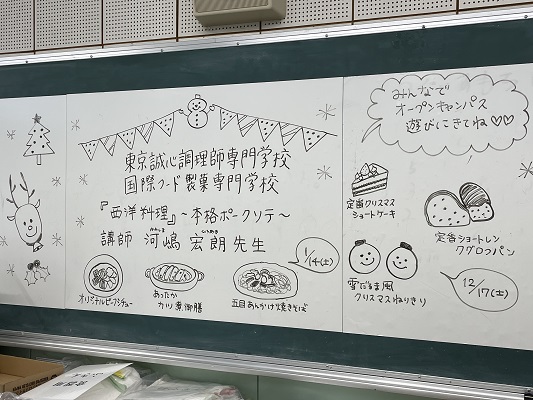 東京誠心調理師専門学校
国際フード製菓専門学校
『西洋料理』〜本格ポークソテ〜
講師 河嶋 宏朗 先生
オリジナルビーフシチュー
あったか
カツ煮御膳
五目あんかけ焼きそば
1/14(土)
みんなで
オープンキャンパス
遊びにきてね♡♡
定番クリスマス
ショートケーキ
定番シュトーレン
クグロフパン
雪だるま風
クリスマスねりきり
12/17(土)